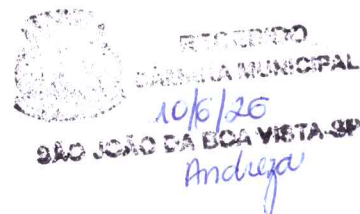 RECEBIDO
CÂMARA MUNICIPAL
10/6/26
SÃO JOÃO DA BOA VISTA-SP
Andreza